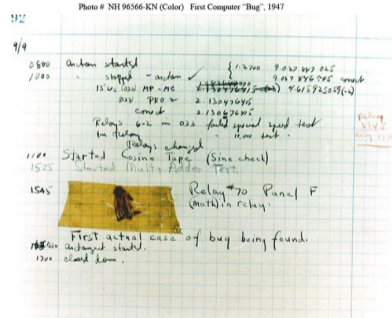 Photo # NH 96566-KN (Color) First Computer "Bug", 1947
92
9/9
0800 antan started
1000 " stopped - antan ✓
{ 1.2700 9.037 847 025
9.037 846 995 correct
13" uc (032) MP - MC 4.615925059(-2)
(033) PRO 2 2.130476415
correct 2.130676415
Relays 6-2 in 033 failed special speed test
in relay " 10.000 test.
Relays changed
1100 Started Cosine Tape (Sine check)
1525 Started Multi Adder Test.
1545 Relay #70 Panel F
(moth) in relay.
First actual case of bug being found.
antangent started.
1700 closed down.